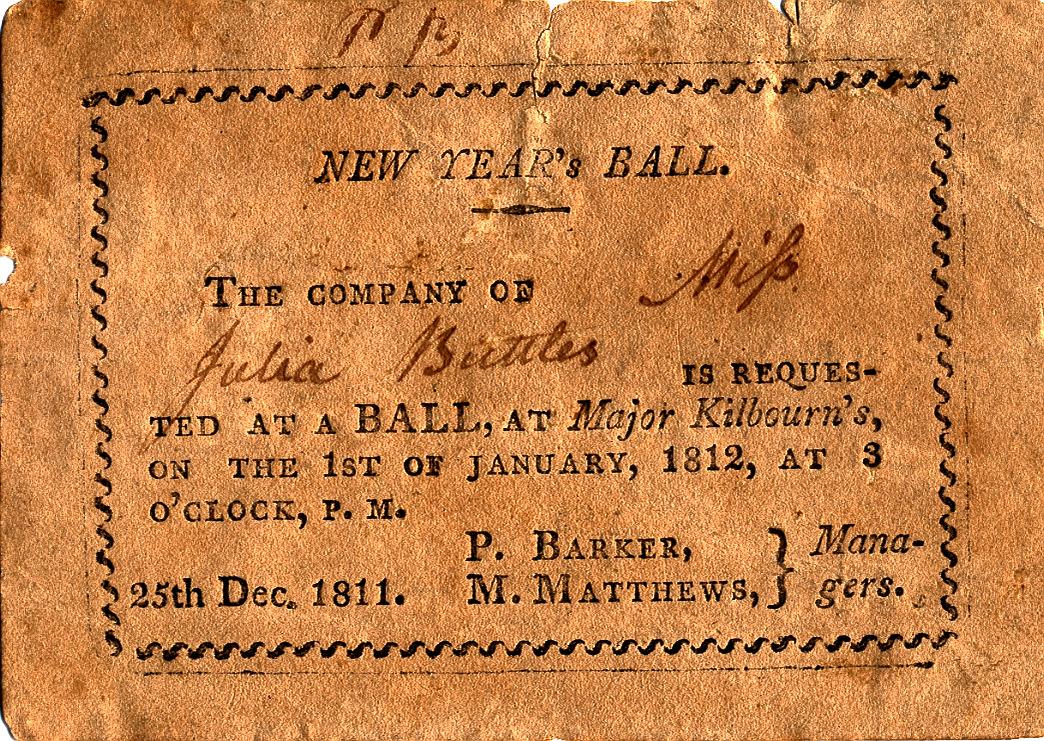 NEW YEAR's BALL.
THE COMPANY OF Miſs.
Julia Buttles IS REQUES-
TED AT A BALL, AT Major Kilbourn's,
ON THE 1ST OF JANUARY, 1812, AT 3
O'CLOCK, P. M.
P. BARKER, } Mana-
25th Dec. 1811. M. MATTHEWS, } gers.